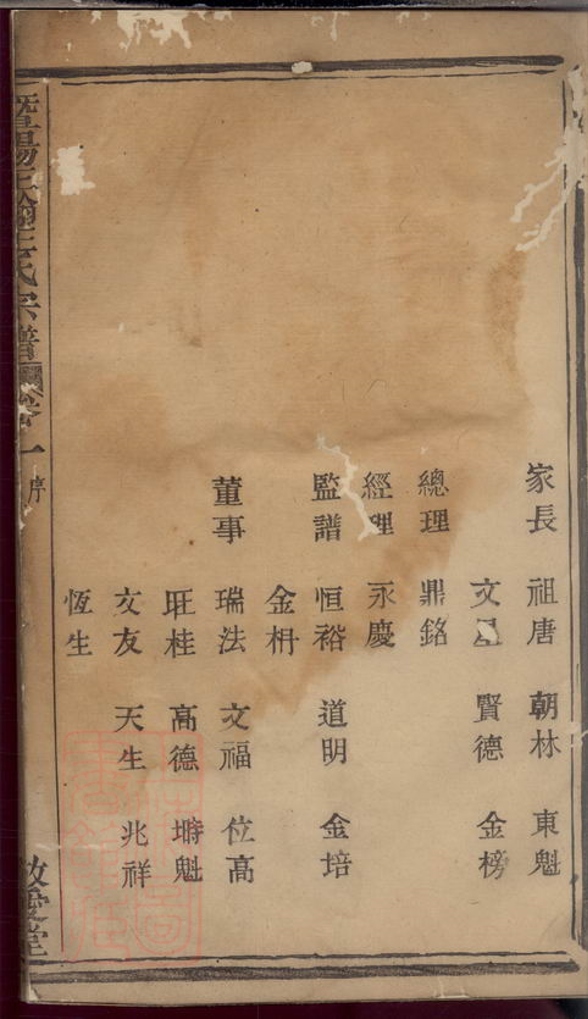 家長 祖唐 朝林 東魁
文 賢德 金榜
總理 鼎銘
經理 永慶
監譜 恒裕 道明 金培
金枬
董事 瑞法 文福 位高
旺桂 高德 塒魁
文友 天生 兆祥
恆生
暨陽 氏宗譜 卷一 序
敦堂